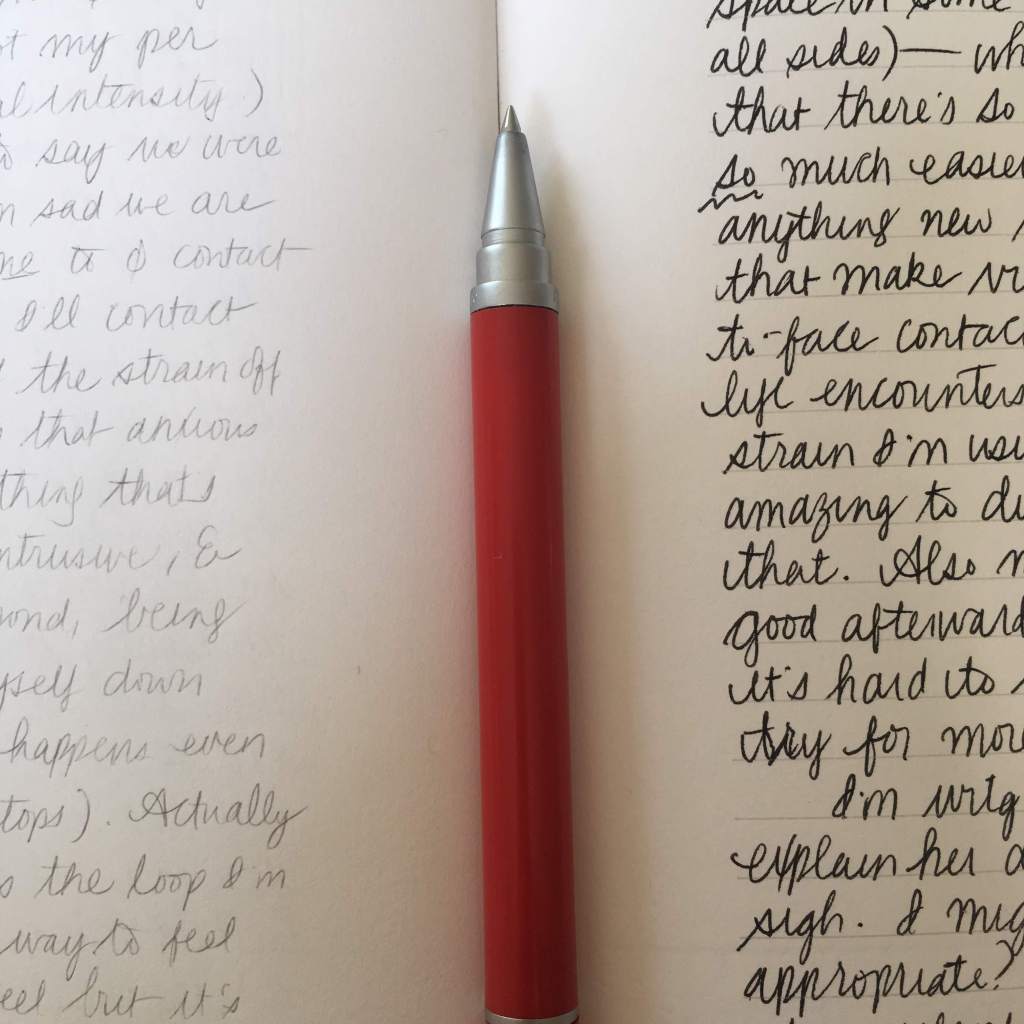 ot my per
al intensity.)
to say we were
m sad we are
me to ϕ contact
I'll contact
the strain off
that anxious
thing that's
ntrusive, &
ond, being
yself down
happens even
tops). Actually
s the loop I'm
way to feel
eel but it's
space in some
all sides) — wh
that there's so
so much easier
anything new
that make vi
to-face contac
life encounters
strain I'm usu
amazing to di
that. Also n
good afterward
it's hard to
try for more
I'm writg
explain her a
sigh. I mig
appropriate?